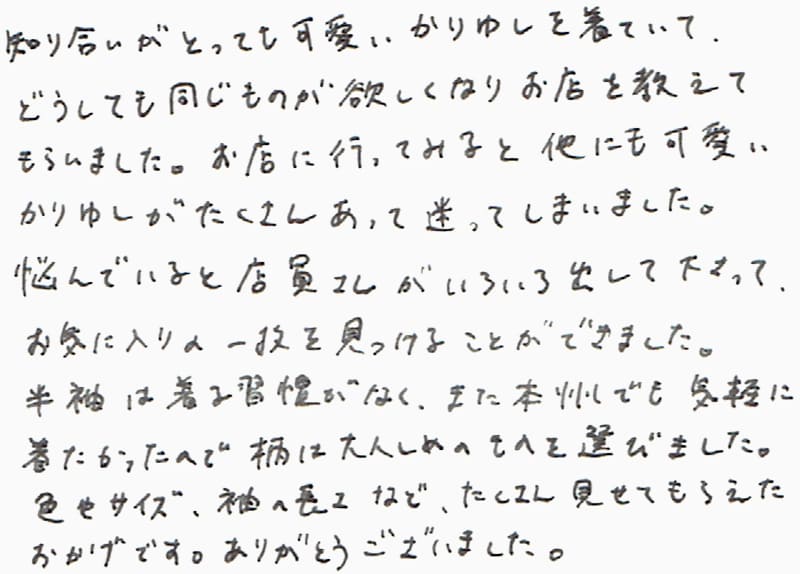 知り合いがとっても可愛いかりゆしを着ていて、
どうしても同じものが欲しくなりお店を教えて
もらいました。お店に行ってみると他にも可愛い
かりゆしがたくさんあって迷ってしまいました。
悩んでいると店員さんがいろいろ出して下さって、
お気に入りの一枚を見つけることができました。
半袖は着る習慣がなく、また本州でも気軽に
着たかったので柄は大人しめのものを選びました。
色やサイズ、袖の長さなど、たくさん見せてもらえた
おかげです。ありがとうございました。